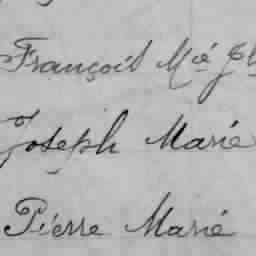 François Mie
Joseph Marie
Pierre Marie